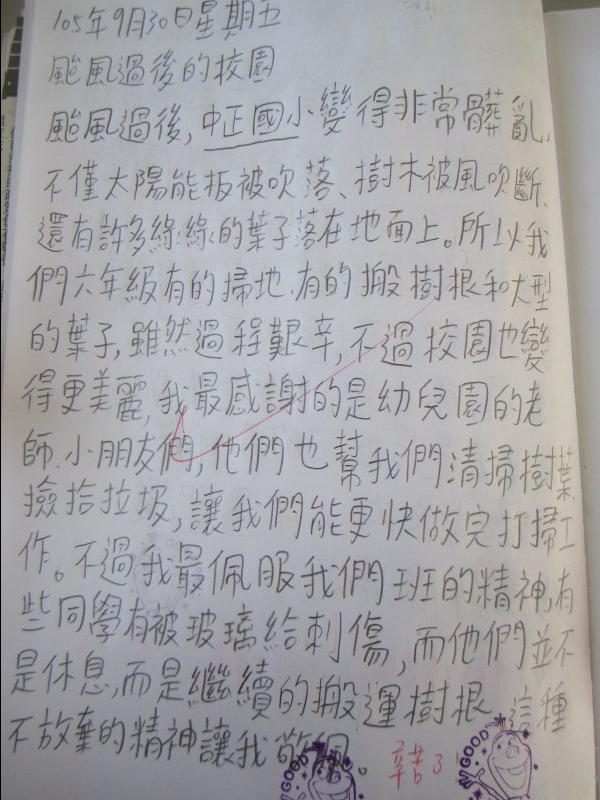 105年9月30日星期五
颱風過後的校園
颱風過後,中正國小變得非常髒亂,
不僅太陽能板被吹落、樹木被風吹斷、
還有許多綠綠的葉子落在地面上。所以我
們六年級有的掃地、有的搬樹根和大型
的葉子,雖然過程艱辛,不過校園也變
得更美麗,我最感謝的是幼兒園的老
師、小朋友們,他們也幫我們清掃樹葉、
撿拾垃圾,讓我們能更快做完打掃工
作。不過我最佩服我們班的精神,有
些同學有被玻璃給刺傷,而他們並不
是休息,而是繼續的搬運樹根,這種
不放棄的精神讓我敬佩。
GOOD
GOOD